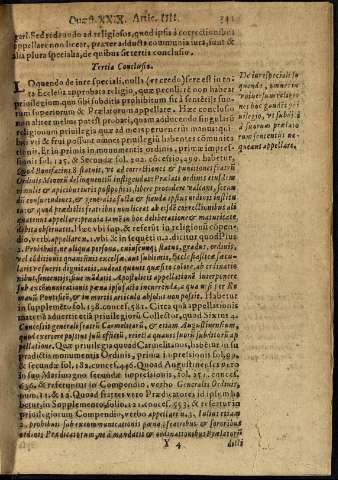 Quæst. XXIX. Artic. IIII. 341
gari. Sed redeundo ad religiosos, quod ipsis à correctionibus
appellare non liceat, præter adducta communia iura, sunt &
alia plura specialia, de quibus sit tertia conclusio.
Tertia Conclusio.
LOquendo de iure speciali, nulla (vt credo) fere est in to-
ta Ecclesia approbata religio, quæ peculiare non habeat
priuilegium quo sibi subditis prohibitum sit à sententijs suo-
rum superiorum & Prælatorum appellare. Hæc conclusio
non aliter melius potest probari, quam adducendo singularū
religionum priuilegia quæ ad meas peruenerint manus qui-
bus vti & frui possunt omnes priuilegij habentes cõmunica-
tionem. Et in primis in monumentis ordinis, primæ impres-
sionis fol. 125. & Secundæ fol. 202. cõcessio. 499. habetur,
Quod Bonifacius 8. statuit, vt ad correctiones & punitiones fratrũ
Ordinis Minorũ delinquentiũ infligendas Prælati ordinis eiusdem
simpliciter & appellatione postpositis, libere procedere valeant, secun
dũ consuetudines, & generalia
& quod prædictis fratribus non liceat ab eisdẽ correctionibus ali
quatenus appellare, prouiso tamẽ in hoc deliberatione & maturitate
debita obseruatis. Hæc vbi sup. & refertur in religionis cõpen-
dio, verbo, appellatem. 1. vbi & in sequẽti n. 2. dicitur quod Pius
2. Prohibuit, ne aliqua persona, cuiuscunq; status, gradus, ordinis,
vel cõditionis quantũuis excelsæ, aut sublimis,
laris resueris dignitatis, audeat quouis quæsito colore, ab ordinatio
nibus, mandatis, Sedis Apostolicæ appellationẽ interponere
Sub excõmunicationis pœna ipso facto incurrenda, a qua nisi per Ro
manũ Pontificẽ, & in mortis articulo absolui non possit. Habetur
in supplemento fol. 158. concess. 581. Circa quã appellationis
materiã aduertit etiã priuilegiorũ Collector, quod Sixtus 4.
Concessit generali fratrũ Carmelitarũ, & etiam Augustinensium,
quod exercere possit suũ officiũ, etiã a quauis suorũ subditorũ ap
pellatione. Quæ priuilegia quoad Carmelitanos, habẽtur in su
pradictis monumentis Ordinis, primæ impressionis fol. 99.
& secundæ fol. 182. concess. 446. Quoad Augustinenses verò
in suo Marimagno secundæ impressionis, fol. 251. concess.
636. & referuntur in Compendio, verbo Generalis Ordinis,
num. 11. & 12. Quoad fratres verò Prædicatores id ipsum ha
betur, in Supplemento, folio. 121. concess. 593. & refertur in
priuilegiorum Compendio, verbo appellare n. 3. Iulius etiam
2. prohibuit sub excommunicationis pœna, fratribus & sororibus
ordinis Prædicatorum, ne a mandatis & ordinationibus Prælatorũ
Y 4 dicti
De iure speciali lo
quendo, omnes re
ligiones habent pri
uilegia, vt subditi
a suorum prælato
rum sententijs ne-
queant appellare.